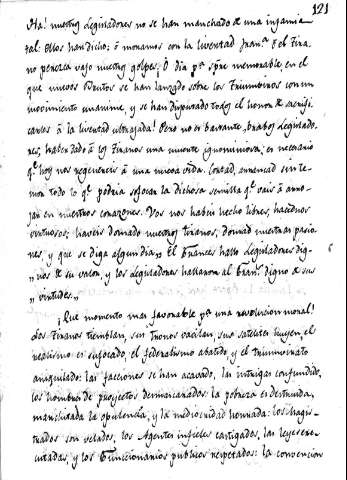 121
Ha! nuestros Legisladores no se han manchado de una infamia
tal: Ellos han dicho; ó moramos con la livertad Fran.ª o el Tira-
no perezca vajo nuestros golpes. O dia p.ª spre memorable, en el
que nuevos Brutos se han lanzado sobre los Triumviros con un
movimiento unanime, y se han disputado todos el honor de sacrifi-
carlos á la livertad ultrajada! Pero no es bastante, brabos Legislado-
res, haber dado á los Tiranos una muerte ignominiosa; es necesario
q.e hoy nos regenereis á una nueva vida. Cortad, arrancad sin te-
mor todo lo q.e podria sofocar la dichosa semilla q.e vais á arro-
jar en nuestros corazones. Vos nos habeis hecho libres, hacednos
virtuosos; haveis domado nuestros tiranos, domad nuestras pasio-
nes, y que se diga algun dia „ El Frances halló Legisladores dig-
„ nos de su valor, y los Legisladores hallaron al Fran.s digno de sus
„ virtudes „
¡Que momento mas favorable p.ª una revolucion moral!
Los Tiranos tiemblan, sus Tronos vacilan, sus satelites huyen, el
realismo es sufocado, el federalismo abatido, y el triumvirato
aniquilado: las facciones se han acavado, las intrigas confundido,
los hombres de proyectos desmascarados: la pobreza es destruida,
marchitada la opulencia, y la mediocridad honrada: los Magis-
trados son velados, los Agentes infieles castigados, las leyes exe-
cutadas, y los Funcionarios publicos respetados: la convencion